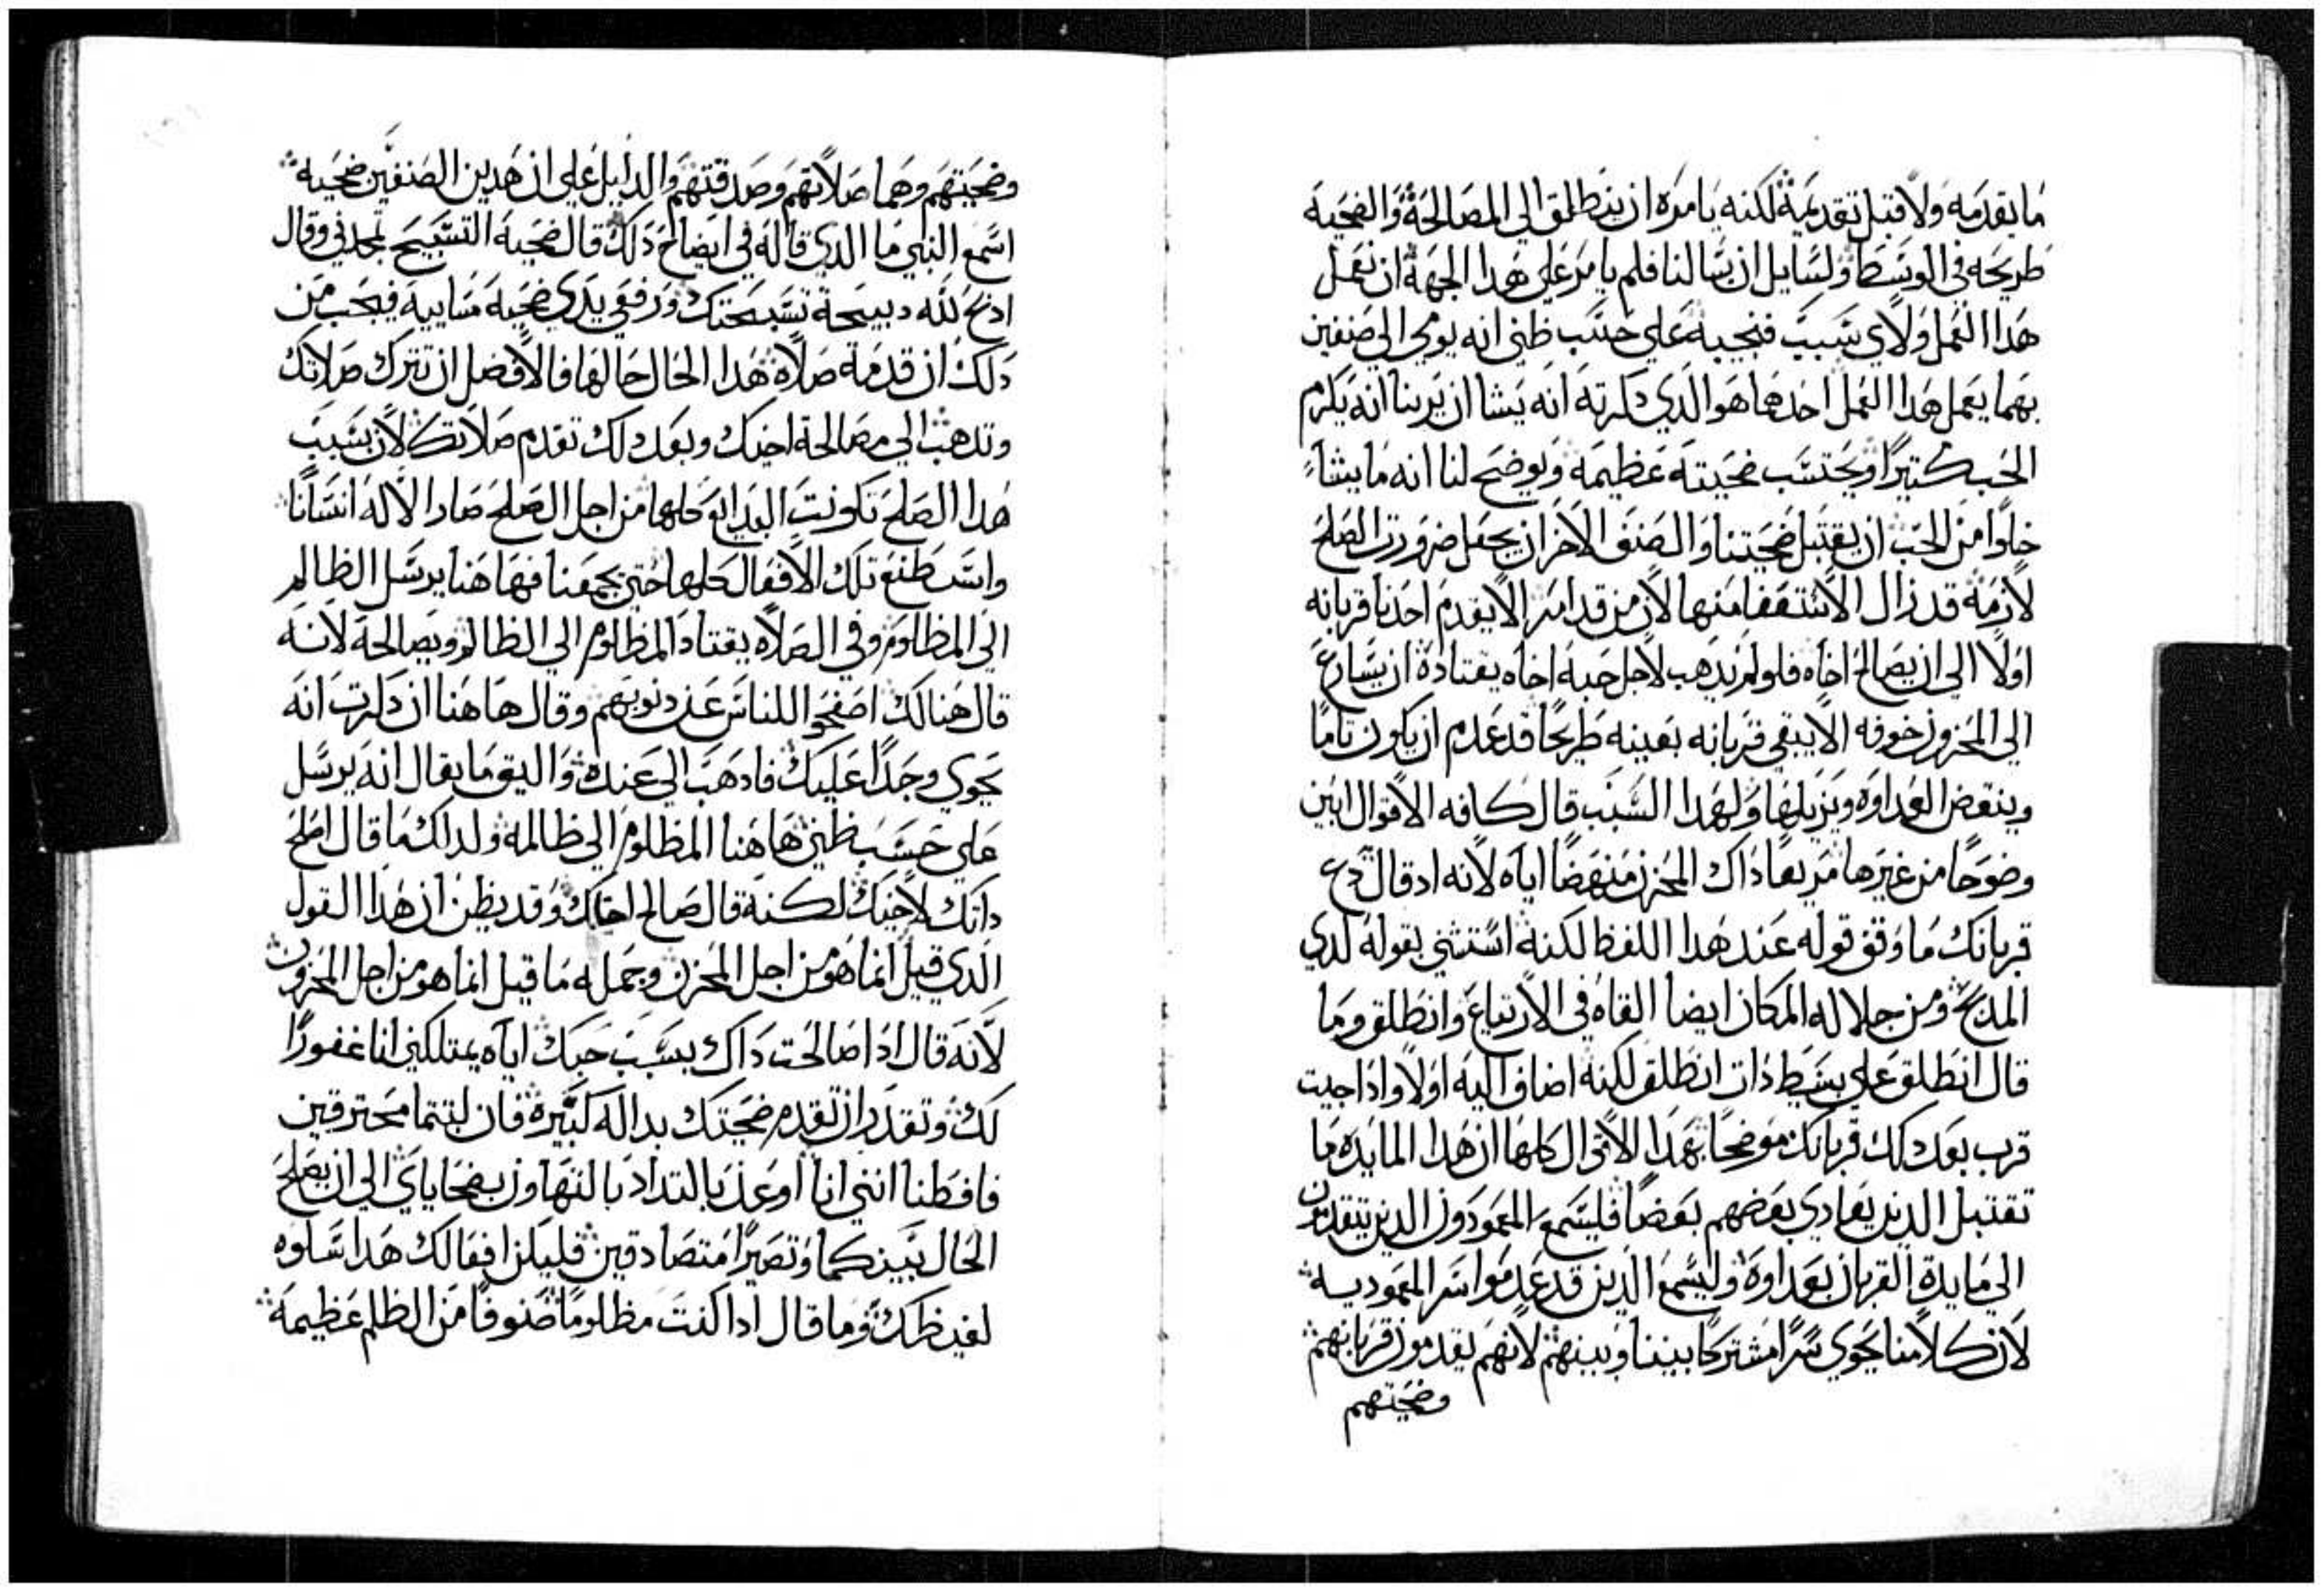 ما يقدمه ولا قبل تقديمة لكنه يامره ان ينطلق الي المصالحة والضحية
طريحه في الوسط ولسايل ان يسالنا فلم يامر علي هدا الجهة ان نعمل
هدا العمل ولاي سبب فنجيبه علي حسب ظني انه يومي الي صنفين
بهما يعمل هدا العمل احدهما هو الدي دكرته انه يشا ان يرينا انه يكرم
الحب كتيرا ويحتسب ضحيته عظيمة ويوضح لنا انه ما يشاء
خلوا من الحب ان يقتبل ضحيتنا والصنف الاخر ان يجعل ضرورت الصلح
لازمة قد زال الاستعفا منها لان من قد امر الا يقدم احدنا قربانه
اولا الي ان يصالح اخاه فلو لم يدهب لاجل حبه اخاه يقتاده ان يسارع
الي المحزون خوفه الا يبقي قربانه بعينه طريحا قد عدم ان يكون تاما
وينقض العداوه ويزيلها ولهدا السبب قال كافه الاقوال ابين
وضوحا من غيرها مريعا داك المحزن منهضا اياه لانه اد قال دع
قربانك ما وقف قوله عند هدا اللفظ لكنه استثني بقوله لدي
المدبح ومن جلاله المكان ايضا القاه في الارتياع وانطلق وما
قال انطلق علي بسيط دات انطلق لكنه اضاف اليه اولا وادا جيت
قرب بعد دلك قربانك موضحا بهدا الاقوال كلها ان هدا المايده ما
تقتبل الدين يعادي بعضهم بعضا فليسمع المعمودون الدين يتقدمون
الي مايدة القربان بعداوة وليسمع الدين قد عدموا سر المعموديه
لان كلامنا يحوي سرا مشتركا بيننا وبينهم لانهم يقدمون قربانهم
وضحيتهم
وضحيتهم وهما صلاتهم وصدقتهم والدليل علي ان هدين الصنفين ضحية
اسمع النبي ما الدي قاله في ايضاح دلك قال ضحية التسبيح تمجدني وقال
ادبح لله دبيحة تسبحتك ورفع يدي ضحية مسايية فيجب من
دلك ان قدمة صلاة هدا الحال حالها فالافضل ان تترك صلاتك
وتدهب الي مصالحة اخيك وبعد دلك تقدم صلاتك لان بسبب
هدا الصلح تكونت البدايع كلها من اجل الصلح صار الاله انسانا
واسطنع تلك الافعال كلها حتي يجمعنا فهاهنا يرسل الظالم
الي المظلوم وفي الصلاه يقتاد المظلوم الي الظالم ويصالحه لانه
قال هنالك اصفحوا للناس عن دنوبهم وقال هاهنا ان دكرت انه
يحوي وجدا عليك فادهب الي عنده واليق ما يقال انه يرسل
علي حسب ظني هاهنا المظلوم الي ظالمه ولدالك ما قال اصلح
داتك لاخيك لكنه قال صالح اخاك وقد يظن ان هدا القول
الدي قيل انما هو من اجل المحزن وجمله ما قيل انما هو من اجل المحزون
لانه قال ادا صالحت داك بسبب حبك اياه يمتلكني انا غفورا
لك وتقدر ان تقدم ضحيتك بداله كبيرة فان لبتتما محترقين
فافطنا انني انا اوعد بالتداد بالتهاون بضحاياي الي ان يصلح
الحال بينكما وتصيرا متصادقين فليكن افعالك هدا سلوه
لغيظك وما قال ادا كنت مظلوما صنوفا من الظلم عظيمة